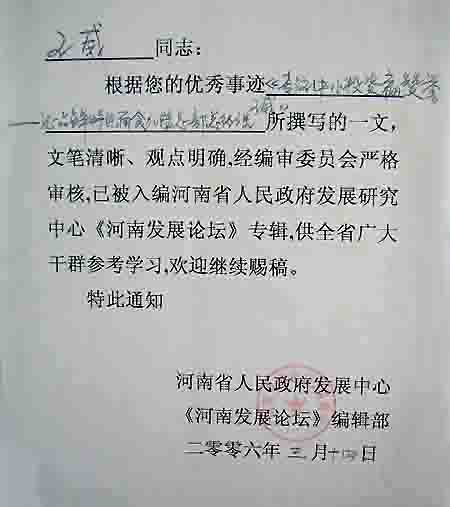 王威 同志：
根据您的优秀事迹《
所撰写的一文，
文笔清晰、观点明确,经编审委员会严格
审核,已被入编河南省人民政府发展研究
中心《河南发展论坛》专辑,供全省广大
干群参考学习,欢迎继续赐稿。
特此通知
河南省人民政府发展中心
《河南发展论坛》编辑部
二零零六年 三 月十四日